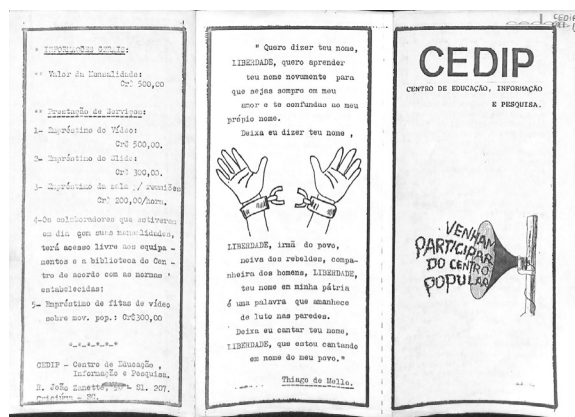 * INFORMAÇÕES GERAIS:
** Valor da Mensalidade:
Cr$ 500,00
** Prestação de Serviços:
1- Empréstimo de Vídeo:
Cr$ 500,00.
2- Empréstimo de Slide:
Cr$ 300,00.
3- Empréstimo da sala p/ reuniões
Cr$ 200,00/hora.
4-Os colaboradores que estiverem
em dia com suas mensalidades,
terá acesso livre aos equipa -
mentos e a biblioteca do Cen -
tro de acordo com as normas
estabelecidas:
5- Empréstimo de fitas de vídeo
sobre mov. pop.: Cr$300,00
*-*-*-*-*-*
CEDIP - Centro de Educação ,
Informação e Pesquisa.
R. João Zanette, - Sl. 207.
Criciúma - SC.
" Quero dizer teu nome,
LIBERDADE, quero aprender
teu nome novamente para
que sejas sempre em meu
amor e te confundas ao meu
própio nome.
Deixa eu dizer teu nome ,
LIBERDADE, irmã do povo,
noiva dos rebeldes, compa-
nheira dos homens, LIBERDADE,
teu nome em minha pátria
é uma palavra que amanhece
de luto nas paredes.
Deixa eu cantar teu nome,
LIBERDADE, que estou cantando
em nome do meu povo."
Thiago de Mello.
CEDIP
CENTRO DE EDUCAÇÃO, INFORMAÇÃO
E PESQUISA.
VENHAM
PARTICIPAR
DO CENTRO
POPULAR